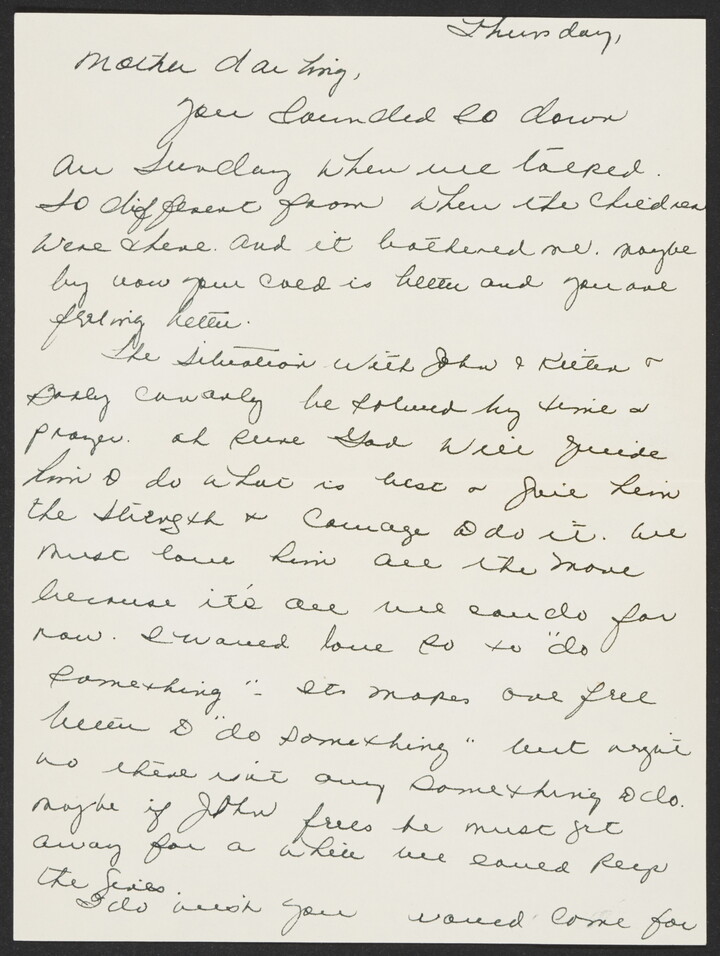 Thursday,
Mother darling,
You sounded so down
on Sunday when we talked.
So different from when the children
were there. And it bothered me. Maybe
by now your cold is better and you are
feeling better.
The situation with John &
can only be solved by time &
prayer. sure God will guide
him to do what is best & give him
the strength & courage to do it. We
must love him all the more
because it's all we can do for
now. I would love so to "do
something" - Its makes one feel
better to "do something" but right
no there isn't any something to do.
Maybe if John feels he must get
away for a while we could keep
the girls.
I do wish you would come for